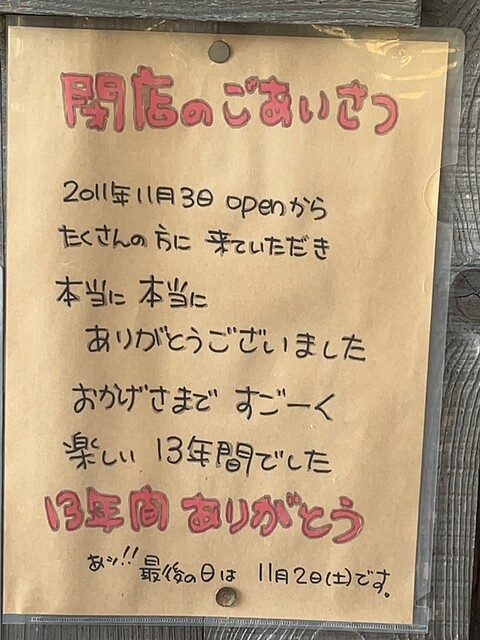 閉店のごあいさつ
2011年11月3日 openから
たくさんの方に 来ていただき
本当に 本当に
ありがとうございました
おかげさまで すごーく
楽しい 13年間でした
13年間 ありがとう
あッ!! 最後の日は 11月2日(土)です。